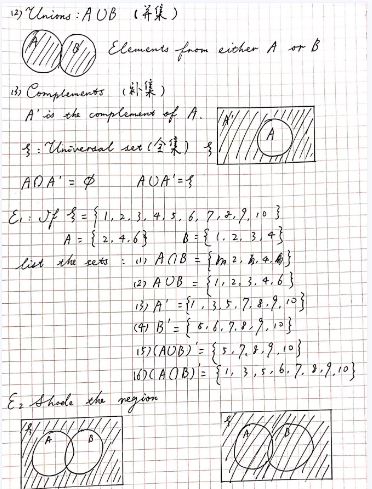 (2) Unions : A∪B (并集)
A B Elements from either A or B
(3) Complements (补集)
A' is the complement of A.
ξ : Universal set (全集) ξ A' A
A∩A' = ∅ A∪A' = ξ
E₁ : If ξ = {1, 2, 3, 4, 5, 6, 7, 8, 9, 10}
A = {2, 4, 6} B = {1, 2, 3, 4}
list the sets : (1) A∩B = {2, 4}
(2) A∪B = {1, 2, 3, 4, 6}
(3) A' = {1, 3, 5, 7, 8, 9, 10}
(4) B' = {5, 6, 7, 8, 9, 10}
(5) (A∪B)' = {5, 7, 8, 9, 10}
(6) (A∩B)' = {1, 3, 5, 6, 7, 8, 9, 10}
E₂ Shade the region
ξ A B
ξ A B